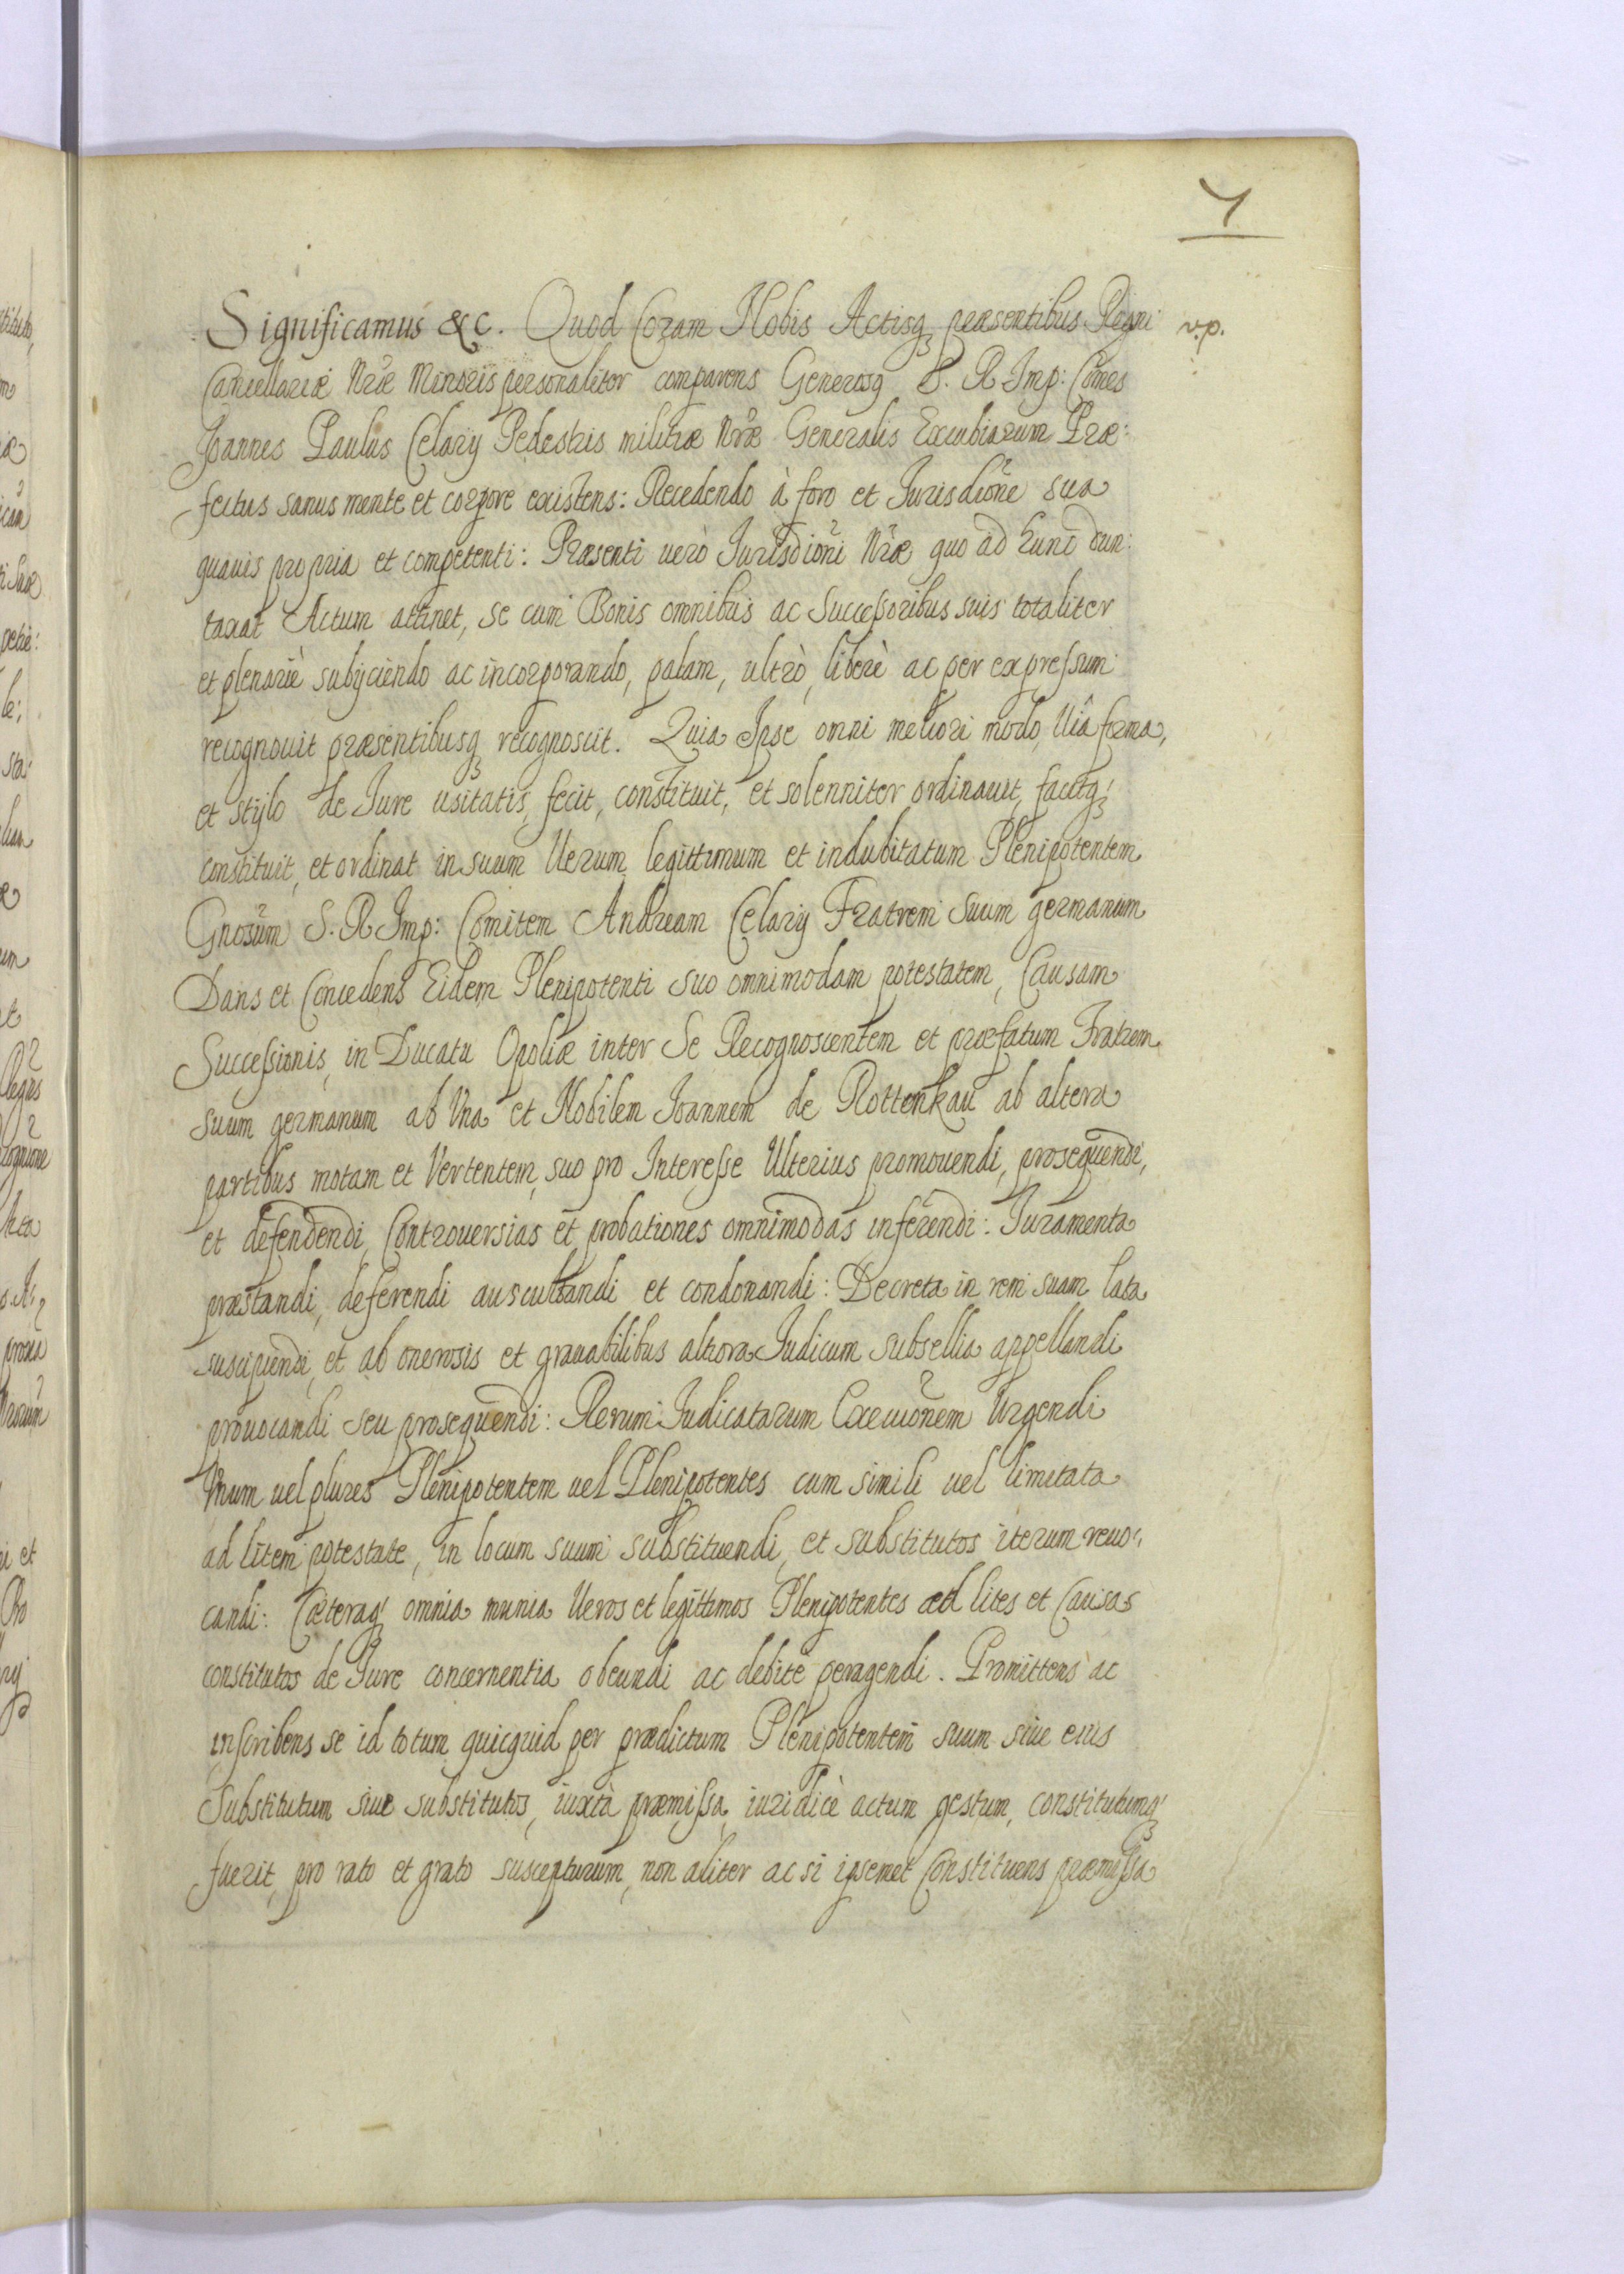 7
Significamus &c. Quod Coram Nobis Actisq præsentibus Regni v.p.
Cancellariæ Nræ Minoris personaliter comparens Generosq S. R. Imp: Comes
Joannes Paulus Celary Pedestris militiæ Nræ Generalis Excubiarum Præ:
fectus sanus mente et corpore existens: Recedendo à foro et Jurisdione sua
quavis propria et competenti: Præsenti verò Jurisdioni Nræ quo ad hunc dun:
taxat Actum attinet, se cum Bonis omnibus ac Successoribus suis totaliter
et plenariè subijciendo ac incorporando, palam, ultrò, liberè ac per expressum
recognouit præsentibusq recognoscit. Quia Ipse omni meliori modo, Uiâ forma,
et stylo de Jure usitatis, fecit, constituit, et solenniter ordinauit, facitq
constituit, et ordinat in suum Uerum legittimum et indubitatum Plenipotentem
Gnosum S. R Imp: Comitem Andream Celary Fratrem Suum germanum
Dans et Concedens Eidem Plenipotenti suo omnimodam potestatem, Causam
Successionis, in Ducatu Opoliæ inter Se Recognoscentem et præfatum Fratrem
suum germanum ab Vna et Nobilem Joannem de Rottenkau ab altera
partibus motam et Vertentem, suo pro Interesse Ulterius promouendi, prosequendi,
et defendendi, Controuersias et probationes omnimodas inferendi: Juramenta
præstandi, deferendi auscultandi et condonandi: Decreta in rem suam lata
suscipiendi, et ab onerosis et grauabilibus altiora Judicum subsellia appellandi
prouocandi seu prosequendi: Rerum Judicatarum Execuionem Urgendi
Vnum uel plures Plenipotentem uel Plenipotentes cum simili uel limitata
ad litem potestate, in locum suum substituendi, et substitutos iterum reuo:
candi: Cæteraq omnia munia Ueros et legittimos Plenipotentes ad lites et Causas
constitutos de Jure concernentia obeundi ac debite peragendi. Promittens ac
inscribens se id totum quicquid per prædictum Plenipotentem suum siue eius
Substitutum siue substitutos, iuxtà præmissa, iuridicè actum gestum, constitutumq
fuerit, pro rato et grato suscepturum, non aliter ac si ipsemet Constituens præmissa